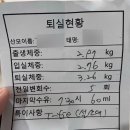 퇴실현황
산모이름: 태명:
출생체중: 2.89 kg
입실체중: 2.76 kg
퇴실체중: 3.26 kg
전일변횟수: 5 회
마지막수유: 7:30시 60ml
특이사항